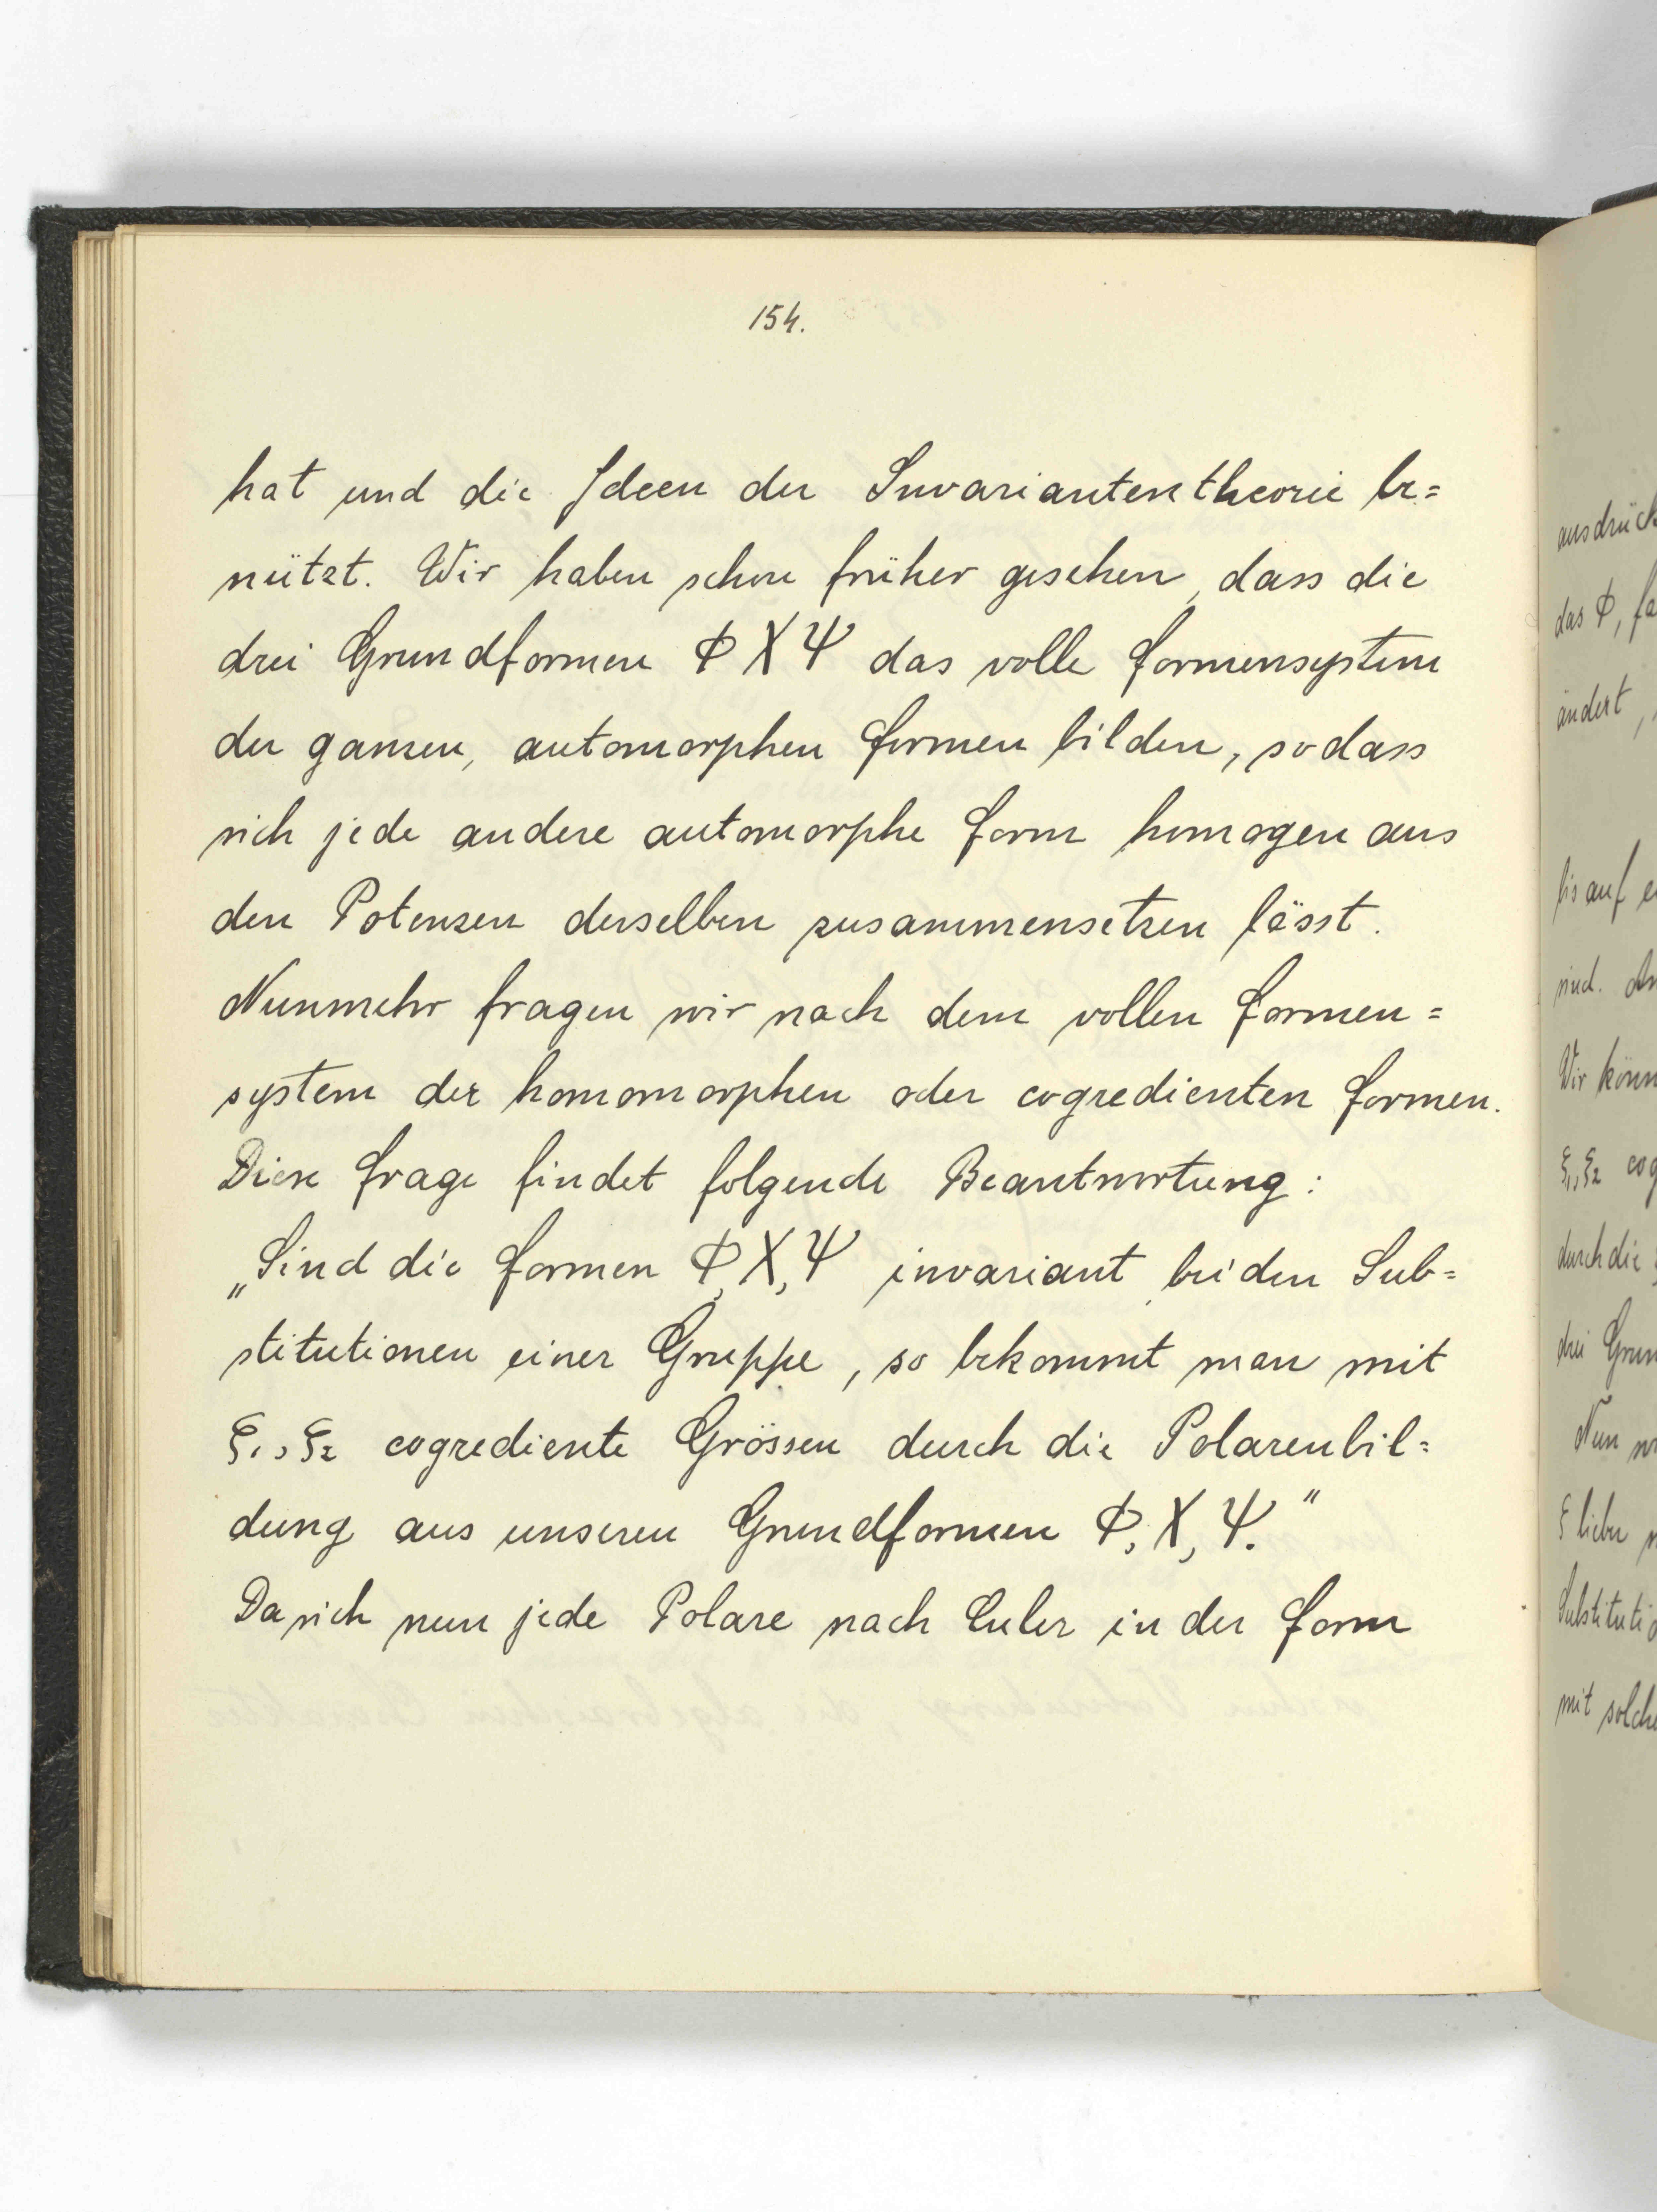 154.
hat und die Ideen der Invariantentheorie be=
nützt. Wir haben schon früher gesehen, dass die
drei Grundformen Φ Χ Ψ das volle Formensystem
der ganzen, automorphen Formen bilden, sodass
sich jede andere automorphe Form homogen aus
den Potenzen derselben zusammensetzen lässt.
Nunmehr fragen wir nach dem vollen Formen=
system der homomorphen oder cogredienten Formen.
Diese Frage findet folgende Beantwortung:
„Sind die Formen Φ, Χ, Ψ invariant bei den Sub=
stitutionen einer Gruppe, so bekommt man mit
ξ₁, ξ₂ cogrediente Grössen durch die Polarenbil=
dung aus unseren Grundformen Φ, Χ, Ψ."
Da sich nun jede Polare nach Euler in der Form
ausdrück
das Φ, fa
ändert,
bis auf e
sind.
Wir könn
ξ₁, ξ₂ cog
durch die
drei Grun
Nun
ξ lieber
Substitutio
mit solche